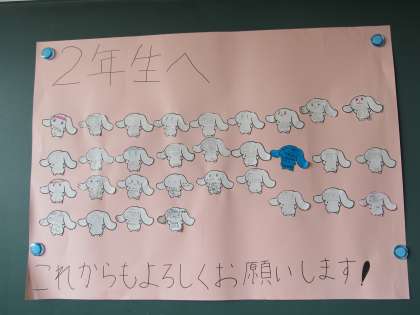 2年生へ
これからもよろしくお願いします!